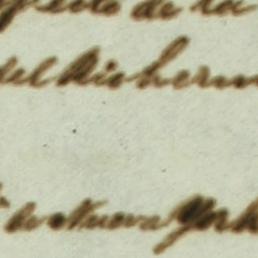 de la
del Rio herm
de Nueva York